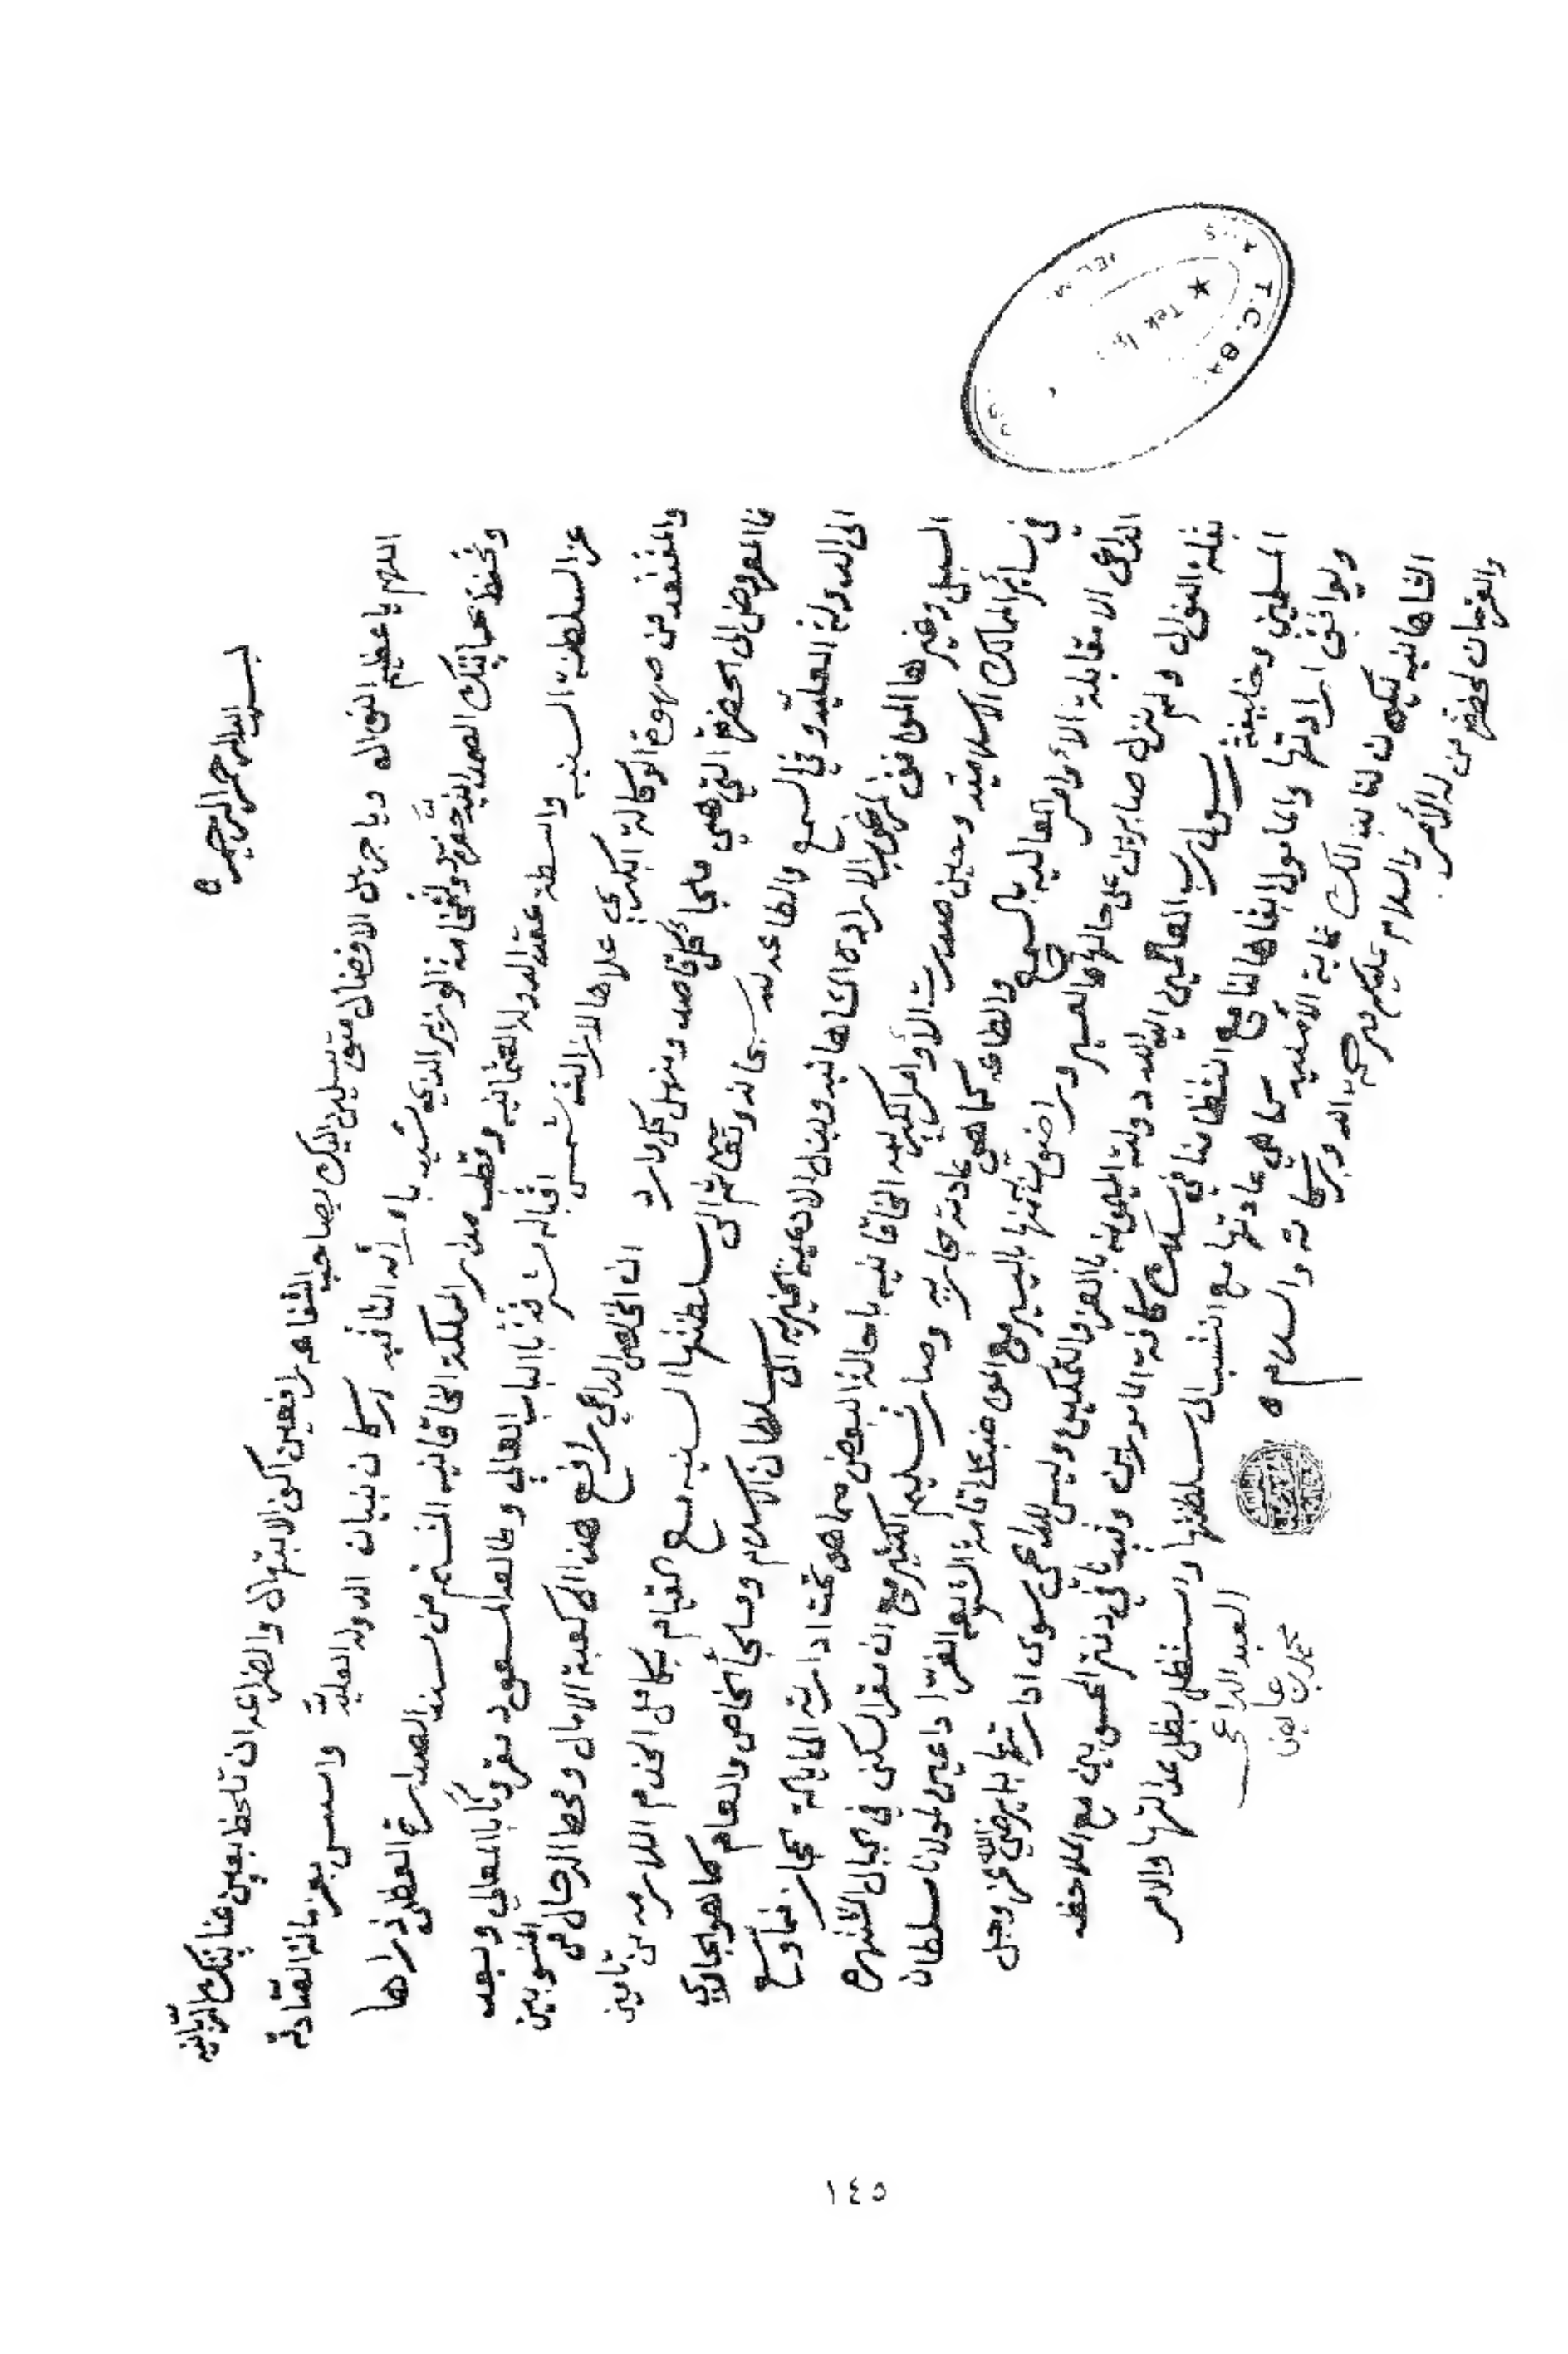 بسم الله الرحمن الرحيم
اللهم يا عظيم النوال ويا جزيل الافضال متوسلين اليك بصاحب الشفاعه رافعين اكف الابتهال والضراعه ان تلحظ بعين عنايتك الربانيه
وتحفظ بحمايتك الصمدانيه حضرة وفخامة الوزير الذي شيد بآرائه الثاقبه اركان بنيان الدوله العليه واسس بعزماته الصادقه
عز السلطنة السنيه واسطة عقد الدوله العثمانيه وقطب مدار المملكة الخاقانيه المتسنم من الصدارة العظمى ذراها
والمقتعد من صهوة الوكالة الكبرى علاها لازالت شمس اقباله مشرقة بالباب العالي وطالعه المسعود مقرونا بالمعالي وبعد
فالمعروض الى الحضرة التي هي ملجأ كل قاصد ومنهل كل وارد ان المخلص الداعي رافع هذا الى كعبة الامال ومحط الرحال من المنسوبين
الى الدولة العليه وفي السمع والطاعه لله سبحانه وتعالى ثم الى سلطنتها السنيه مع القيام بكامل الخدم اللازمه من تامين
السبل وغيرها الموافق لمرغوب الاراده الشاهانيه وببذل الادعية الخيريه الى سلطان الاسلام وملجأ الخاص والعام كما هو الجاري
في سائر الممالك الاسلاميه وحين صدرت الأوامر الكريمه الخاقانيه باحالة البعض مما هو تحت ادارته الى حجاز فما وسع
الداعي الا مقابلة الأوامر العاليه بالسمع والطاعه كما هي عادته جاريه وصار تسليم الكثير مع ان مقر السكنى في الجبال الشهره
بقلة النوال ولم نزل صابرين على حالها العسير وراضون منها باليسير مع المواضبه على اقامة الشريعه الغرا داعين لمولانا سلطان
المسلمين وخليفة رسول رب العالمين ايد الله دولته الميمونه بالعز والتمكين وليس للداعي سوى ادارتها بما يرضي الله عز وجل
ويوافق ارادتها والمامول ابقاها لنا مع انتظامنا في سلك كافة المامورين وقيدنا في دفتر المحسوبين مع الملاحظه
الشاهانيه ليكون لنا بذالك غاية الأمنيه كما هي عادتها مع المنتسب الى سلطنتها واستظل بظل عدالتها والامر
والفرمان لحضرة من له الأمر والسلام عليكم ورحمة الله وبركاته والسلام
العبد الداعي
محمد بن عايض
T.C.
١٤٥